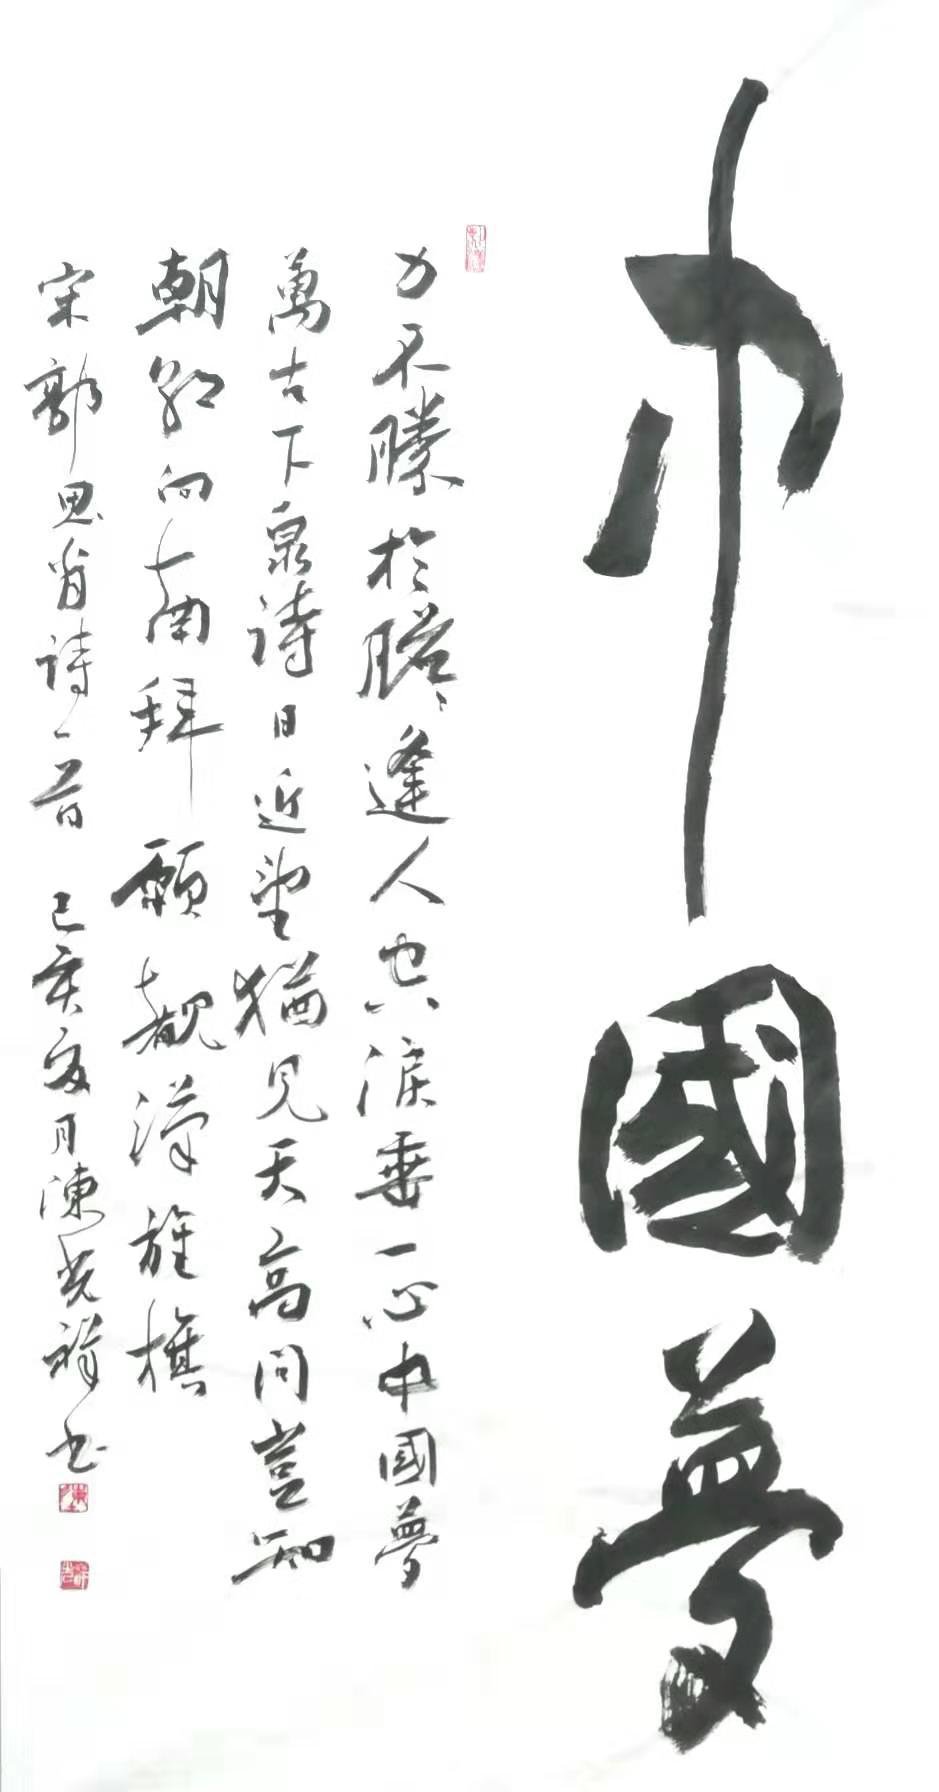 中國夢
力不勝於膽逢人空淚垂一心中國夢
萬古下泉詩日近望猶見天高問豈知
朝朝向南拜願覩漢旌旗
宋鄭思肖詩一首 己亥夏月陳光祥书